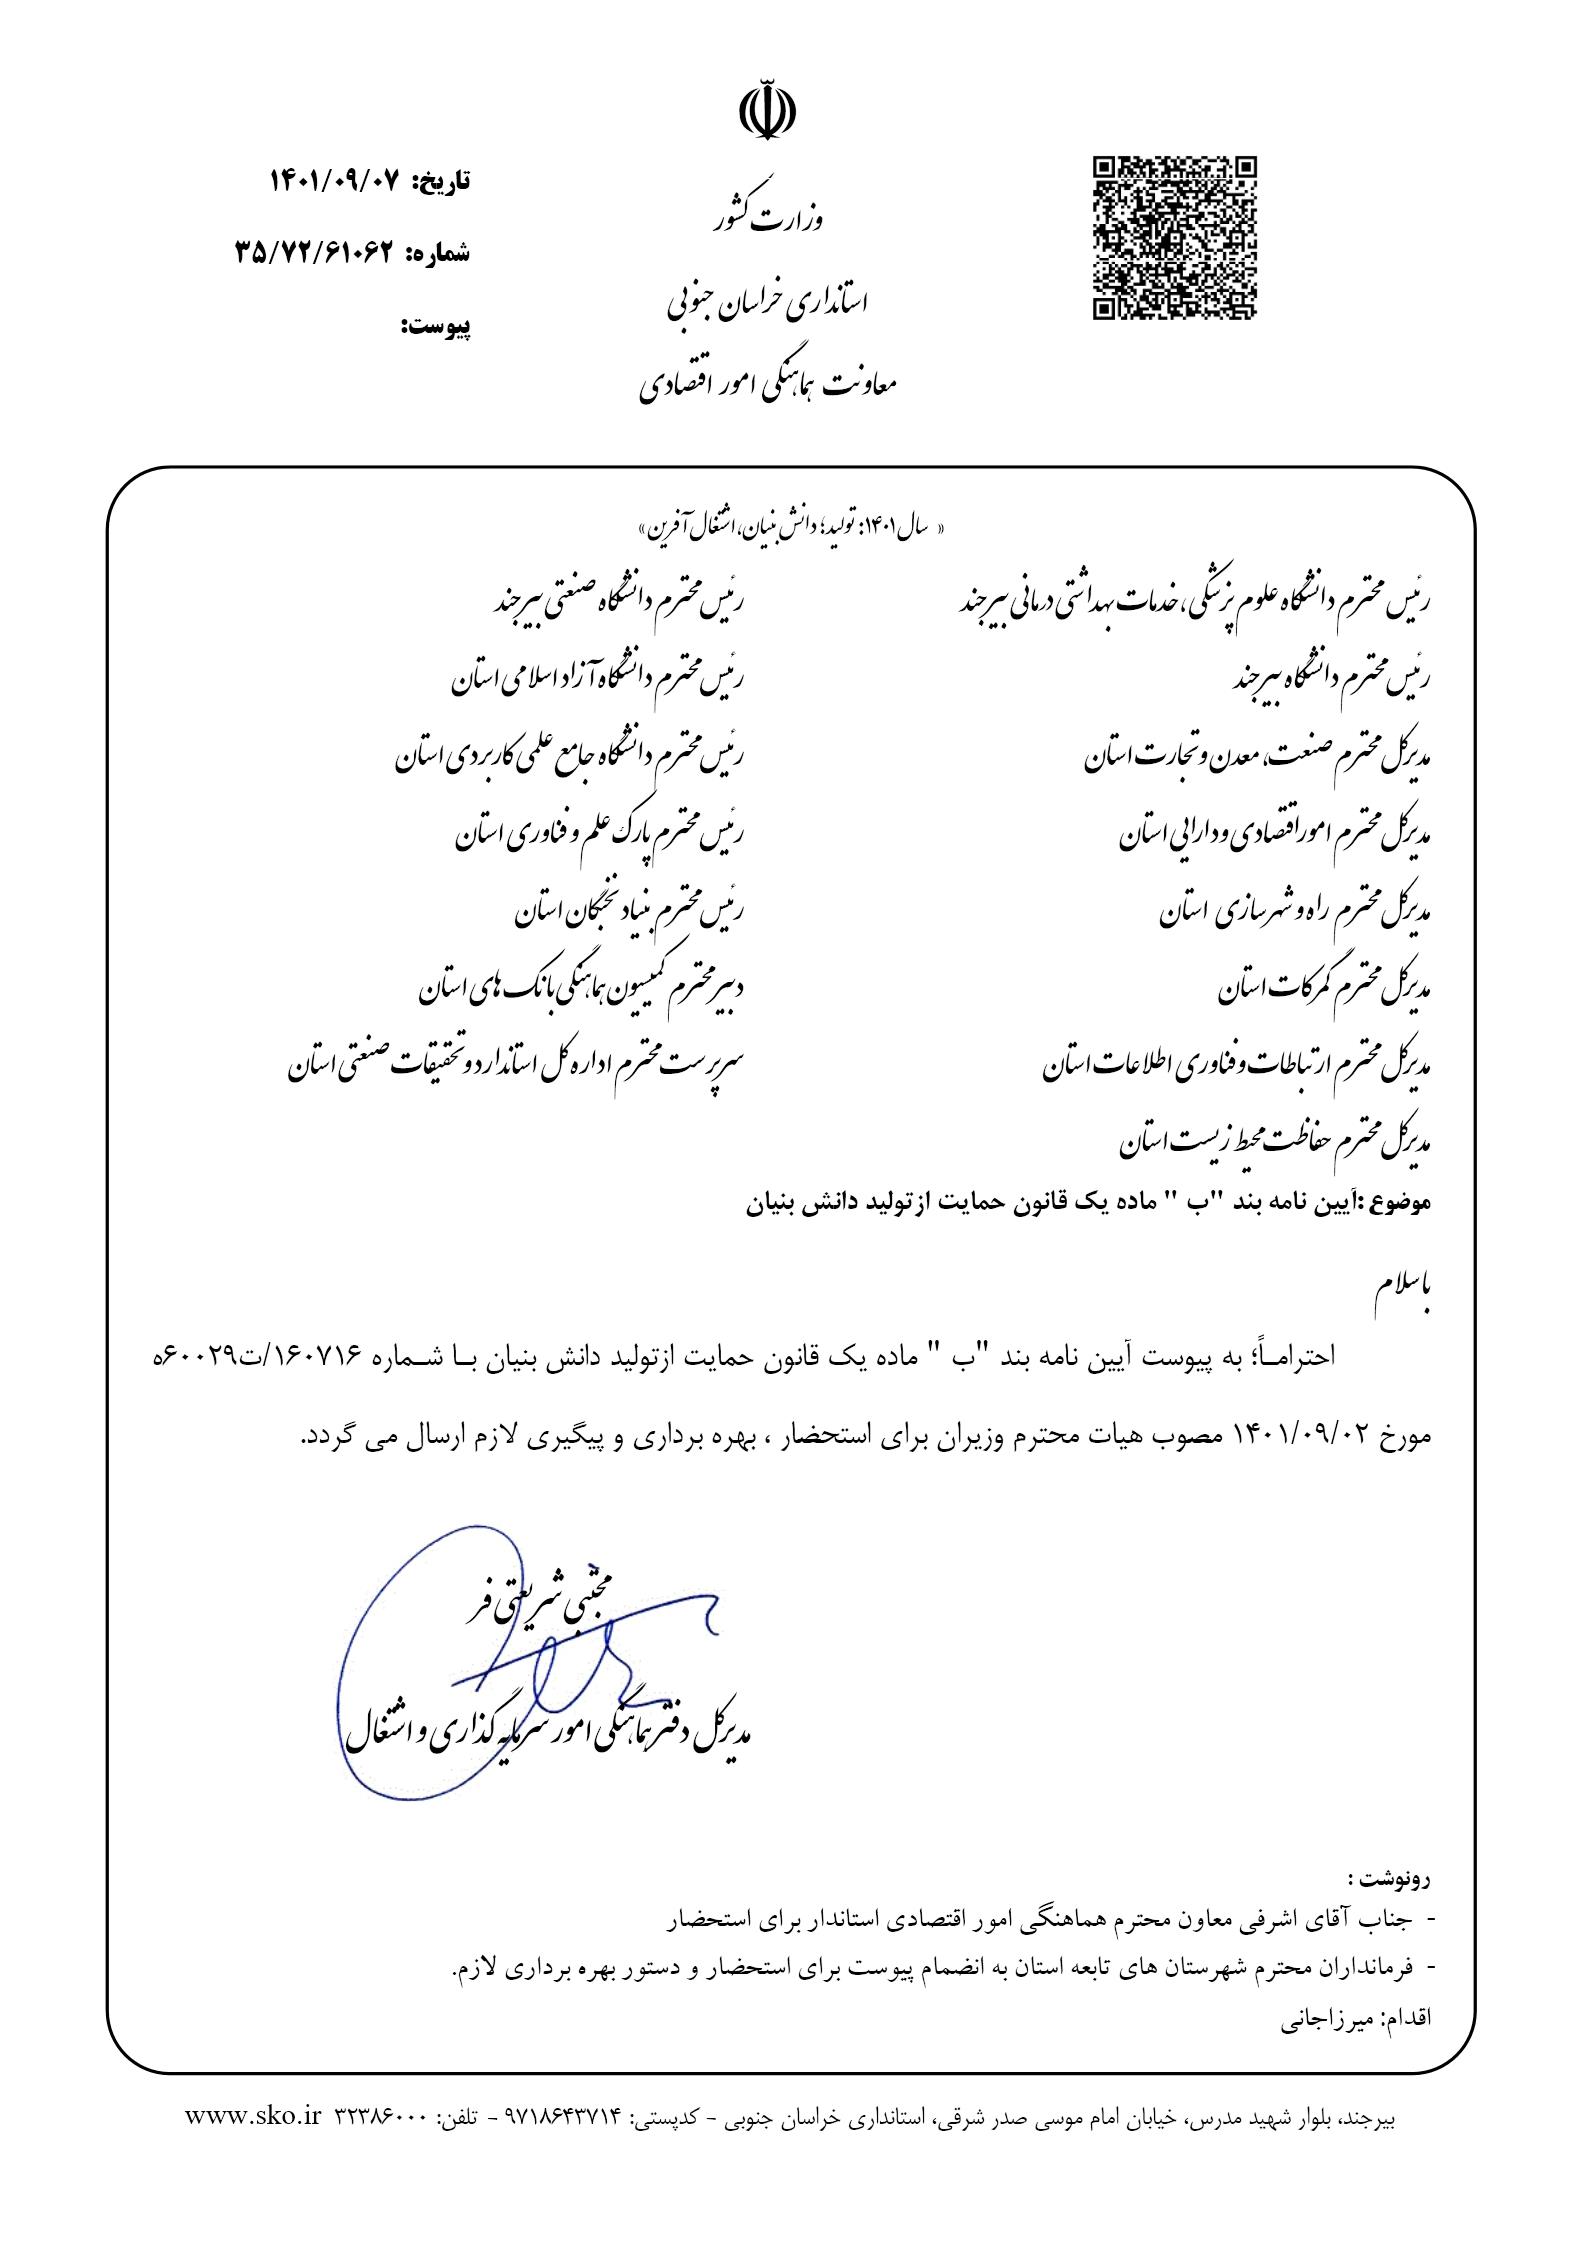 تاریخ: ۱۴۰۱/۰۹/۰۷
شماره: ۳۵/۷۲/۶۱۰۶۲
پیوست:
وزارت کشور
استانداری خراسان جنوبی
معاونت هماهنگی امور اقتصادی
« سال ۱۴۰۱: تولید؛ دانش بنیان، اشتغال آفرین»
رئیس محترم دانشگاه علوم پزشکی ،خدمات بهداشتی درمانی بیرجند
رئیس محترم دانشگاه بیرجند
مدیرکل محترم صنعت، معدن و تجارت استان
مدیرکل محترم امور اقتصادی و دارایی استان
مدیرکل محترم راه و شهرسازی استان
مدیرکل محترم گمرکات استان
مدیرکل محترم ارتباطات و فناوری اطلاعات استان
مدیرکل محترم حفاظت محیط زیست استان
رئیس محترم دانشگاه صنعتی بیرجند
رئیس محترم دانشگاه آزاد اسلامی استان
رئیس محترم دانشگاه جامع علمی کاربردی استان
رئیس محترم پارک علم و فناوری استان
رئیس محترم بنیاد نخبگان استان
دبیر محترم کمیسیون هماهنگی بانک های استان
سرپرست محترم اداره کل استاندارد و تحقیقات صنعتی استان
موضوع :آیین نامه بند "ب " ماده یک قانون حمایت ازتولید دانش بنیان
باسلام
احترامــاً؛ به پیوست آیین نامه بند "ب " ماده یک قانون حمایت ازتولید دانش بنیان بــا شــماره ۱۶۰۷۱۶/ت۶۰۰۲۹ه
مورخ ۱۴۰۱/۰۹/۰۲ مصوب هیات محترم وزیران برای استحضار ، بهره برداری و پیگیری لازم ارسال می گردد.
مجتبی شریعتی فر
مدیرکل دفتر هماهنگی امور سرمایه گذاری و اشتغال
رونوشت :
- جناب آقای اشرفی معاون محترم هماهنگی امور اقتصادی استاندار برای استحضار
- فرمانداران محترم شهرستان های تابعه استان به انضمام پیوست برای استحضار و دستور بهره برداری لازم.
اقدام: میرزاجانی
بیرجند، بلوار شهید مدرس، خیابان امام موسی صدر شرقی، استانداری خراسان جنوبی - کدپستی: ۹۷۱۸۶۴۳۷۱۴ - تلفن: ۳۲۳۸۶۰۰۰ www.sko.ir